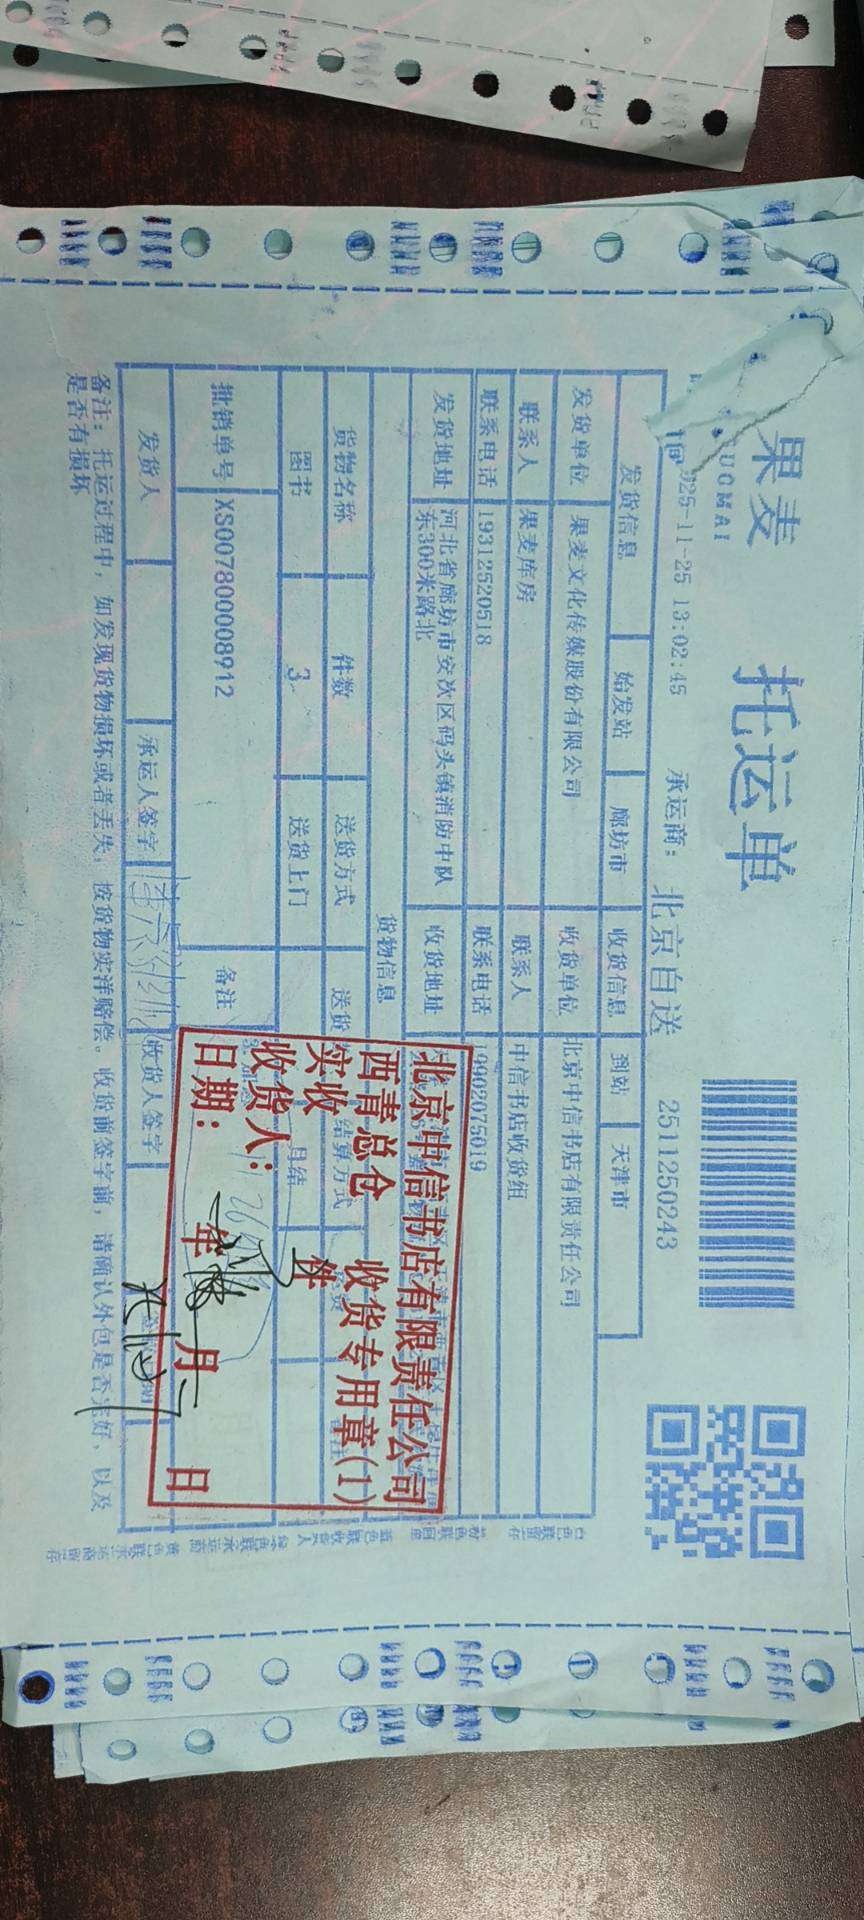 果麦
UOMAI
托运单
2511250243
025-11-25 13:02:45
承运商： 北京自送
发货信息 始发站 廊坊市 收货信息 到站 天津市
发货单位 果麦文化传媒股份有限公司 收货单位 北京中信书店有限责任公司
联系人 果麦库房 联系人 中信书店收货组
联系电话 19312520518 联系电话 19902075019
发货地址 河北省廊坊市安次区码头镇消防中队
东300米路北
收货地址
货物信息
货物名称 件数 送货方式 送货 结算方式
图书 3 送货上门 月结
批销单号 XS007800008912 备注
发货人 承运人签字 收货人签字
备注：托运过程中，如发现货物损坏或者丢失，按货物实洋赔偿。收货前签字前，请确认外包是否完好，以及
是否有损坏
北京中信书店有限责任公司
西青总仓 收货专用章(1)
实收 件
收货人：
日期： 年 月 日